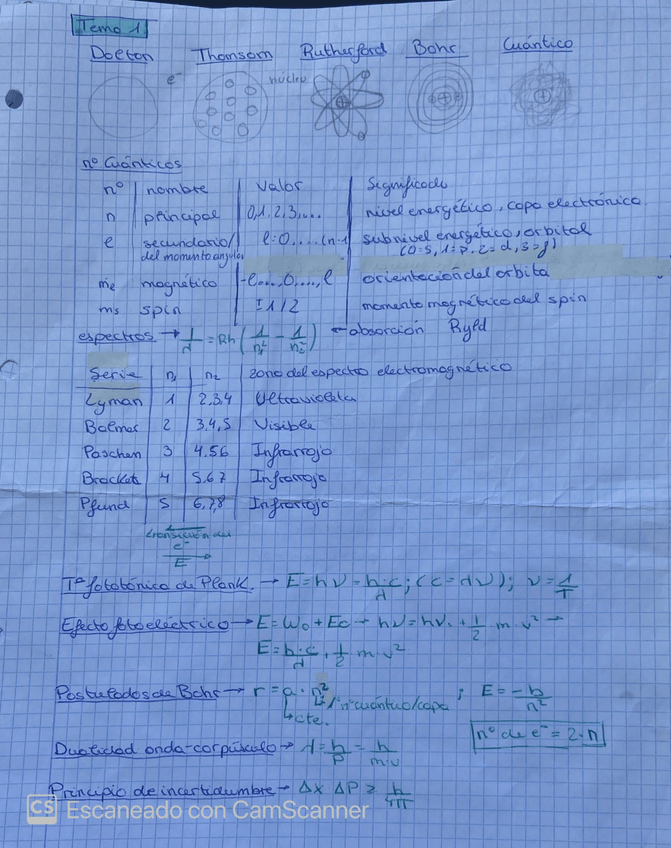 Tema 1
Dolton Thomson Rutherford Bohr Cuántico
e⁻ núcleo
nº Cuánticos
nº nombre Valor Significado
n principal 0,1,2,3,... nivel energético, capa electrónica.
l secundario/ l=0....(n-1 subnivel energético, orbital
del momento angular (0=s, 1=p, 2=d, 3=f)
ml magnético -l...,0,...,l orientación del orbita
ms spin ±1/2 momento magnético del spin
espectros → 1/λ = Rh (1/n₁² - 1/n₂²) ← absorción Ryld
Serie n₁ n₂ zona del espectro electromagnético
Lyman 1 2,3,4 Ultravioleta
Balmer 2 3,4,5 Visible
Paschen 3 4,5,6 Infrarrojo
Bracket 4 5,6,7 Infrarrojo
Pfund 5 6,7,8 Infrarrojo
e⁻
E
Tª fotobónica de Plank. → E=hν=h·c/λ; (c=λν); ν=1/T
Efecto fotoeléctrico → E=W₀+Ec → hν=hν₀+1/2 m·v² →
E=h·c/λ+1/2 m·v²
Postulados de Bohr → r=a·n² ; E=-b/n²
nº cuántico/capa
↳cte.
nº de e⁻=2·n
Dualidad onda-corpúsculo → λ=h/p=h/m·v
Principio de incertidumbre → Δx ΔP ≥ h/4π
CS Escaneado con CamScanner